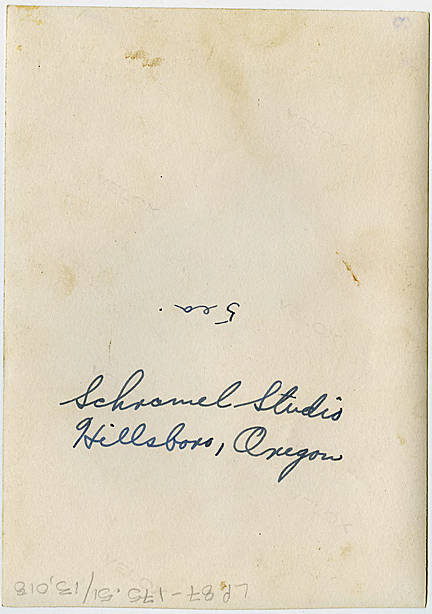 5 ea.
Schramel Studio
Hillsboro, Oregon
LP 87-175.51/13,018